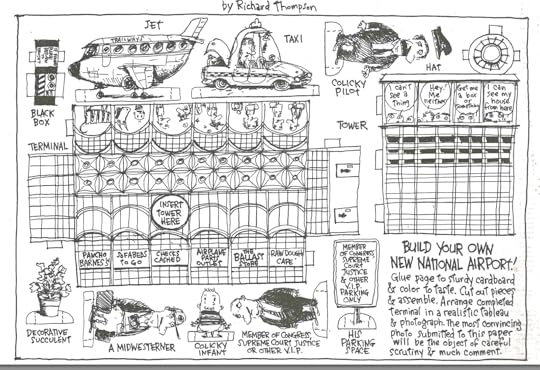 by Richard Thompson
JET
TAXI
TRAILWAYS
COLICKY
PILOT
HAT
BLACK
BOX
I can't
see a
thing
Hey!
Me
neither!
Get me
a box
or
something
I can
see my
house
from here!
TOWER
TERMINAL
INSERT
TOWER
HERE
PANCHO
BARNES'S
SOFABEDS
TO GO
CHECKS
CASHED
AIRPLANE
PARTY
OUTLET
THE
BALLAST
STORE
RAIN DOUGH
CAFE
MEMBER
OF CONGRESS
SUPREME
COURT
JUSTICE
& OTHER
V.I.P.
PARKING
ONLY
BUILD YOUR OWN
NEW NATIONAL AIRPORT!
Glue page to sturdy cardboard
& color to taste. Cut out pieces
& assemble. Arrange completed
terminal in a realistic tableau
& photograph. The most convincing
photo submitted to this paper
will be the object of careful
scrutiny & much comment.
DECORATIVE
SUCCULENT
A MIDWESTERNER
COLICKY
INFANT
MEMBER OF CONGRESS
SUPREME COURT JUSTICE
OR OTHER V.I.P.
HIS
PARKING
SPACE